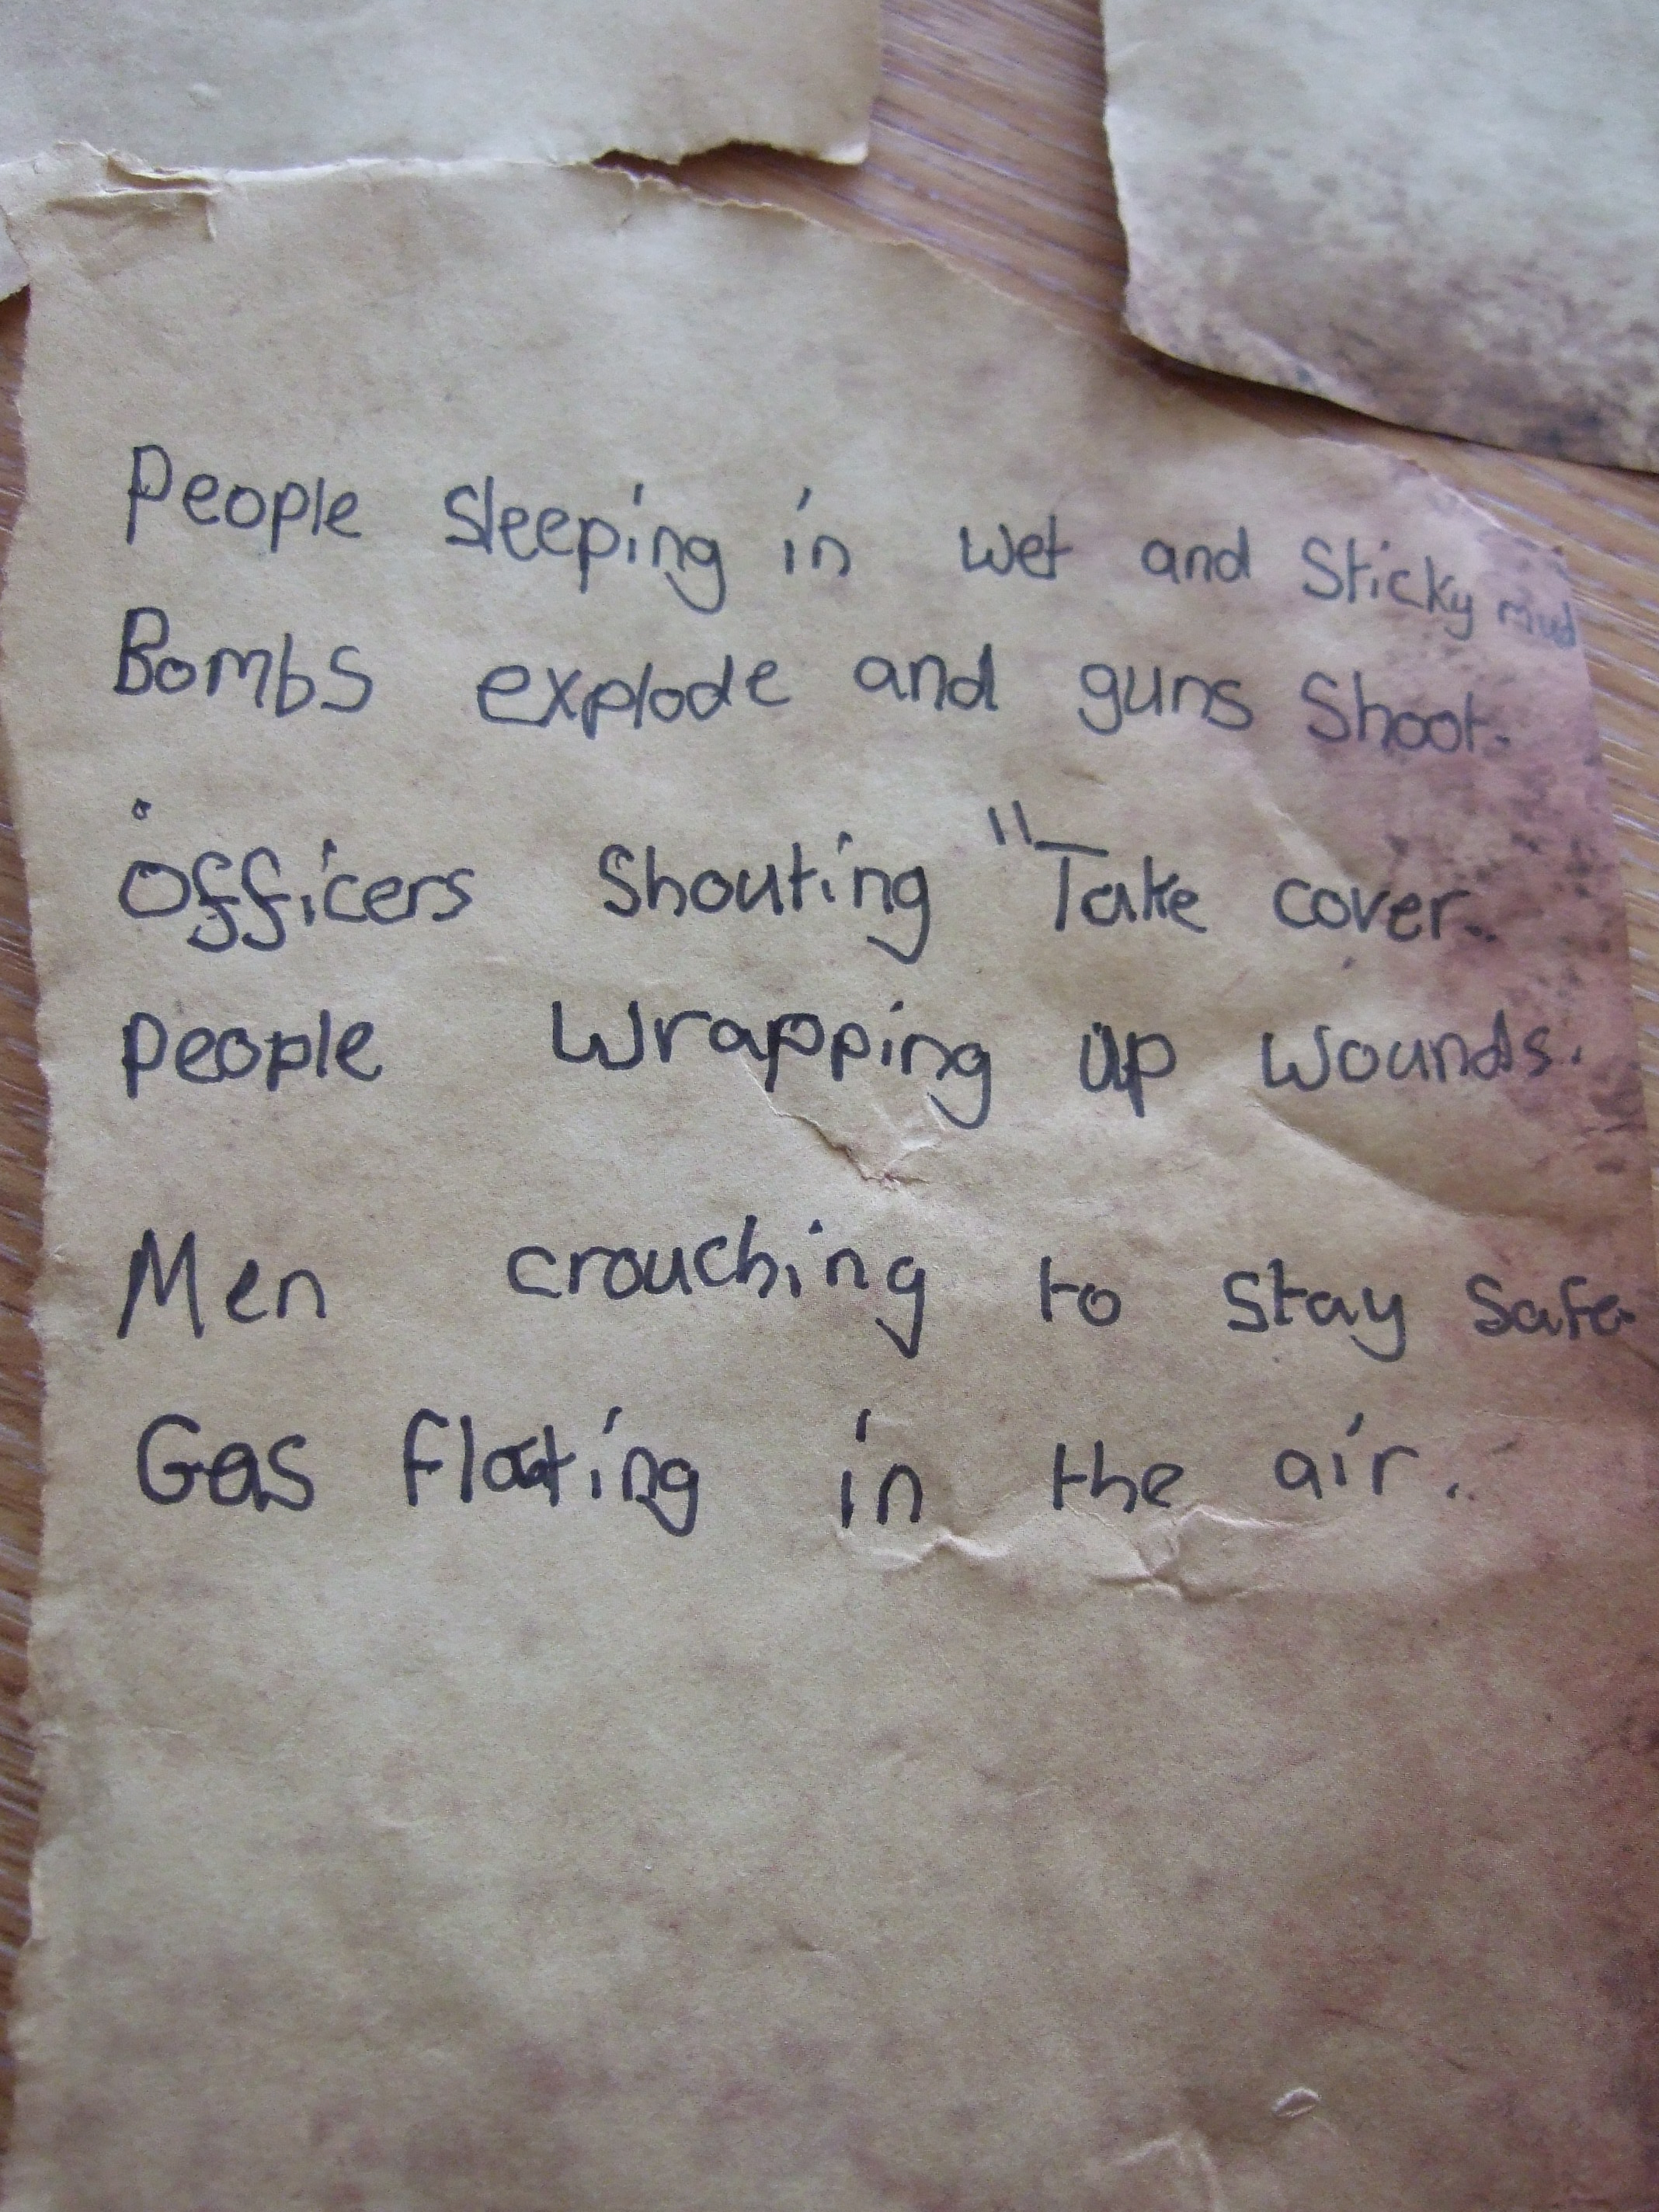 People sleeping in wet and sticky mud
Bombs explode and guns shoot.
officers shouting "Take cover..
people wrapping up wounds.
Men crouching to stay safe.
Gas floating in the air..